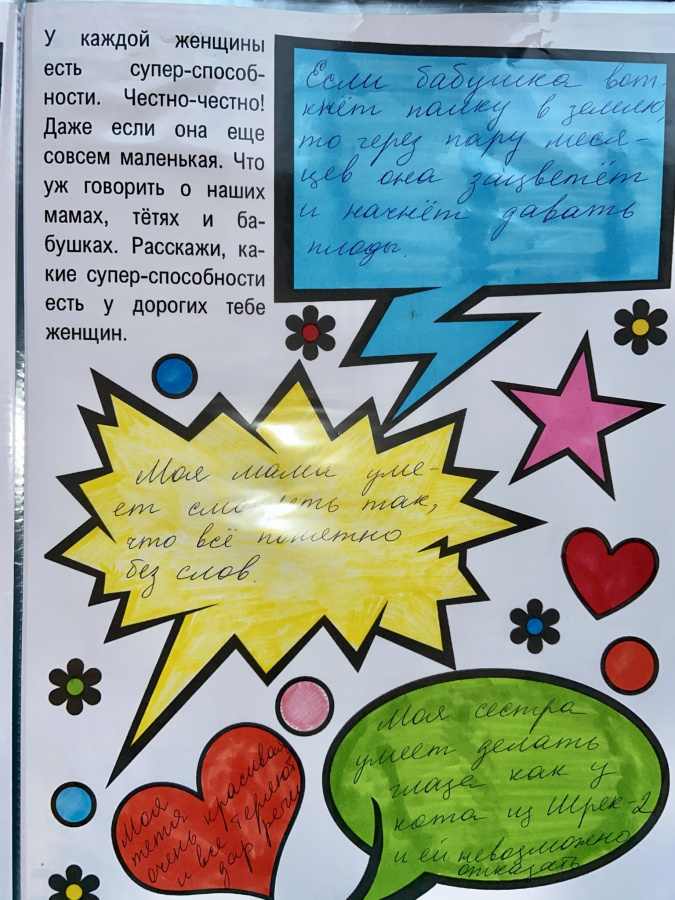 У каждой женщины
есть супер-способ-
ности. Честно-честно!
Даже если она еще
совсем маленькая. Что
уж говорить о наших
мамах, тётях и ба-
бушках. Расскажи, ка-
кие супер-способности
есть у дорогих тебе
женщин.
Если бабушка вот-
кнёт палку в землю,
то через пару меся-
цев она зацветёт
и начнёт давать
плоды.
Моя мама уме-
ет смотреть так,
что всё понятно
без слов.
Моя сестра
умеет делать
глаза как у
кота из Шрек-2
и ей невозможно
отказать
Моя
тётя
очень красивая
и все теряют
дар речи